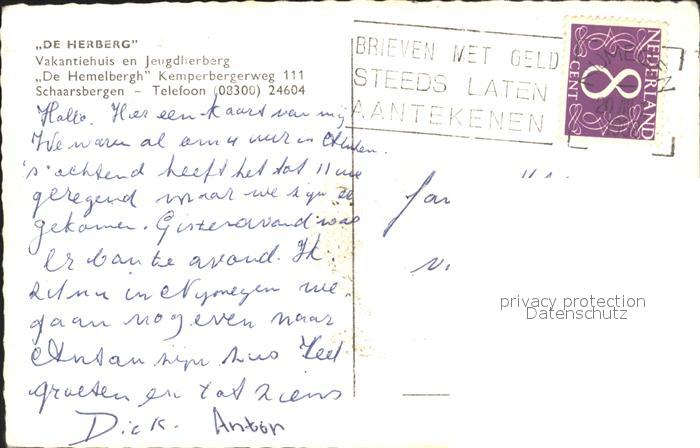 „DE HERBERG"
Vakantiehuis en Jeugdherberg
„De Hemelbergh" Kemperbergerweg 111
Schaarsbergen – Telefoon (08300) 24604
Hallo. Hier een kaart van mij
We waren al om 4 uur in
's ochtend heeft het tot 11 uur
geregend maar we zijn er
gekomen. Gisteravond was
er bonte avond. Ik
zit nu in Nijmegen we
gaan nog even naar
zijn huis Veel
groeten en tot ziens
Dick. Anton
BRIEVEN MET GELD
STEEDS LATEN
AANTEKENEN
NEDERLAND
8
CENT
privacy protection
Datenschutz